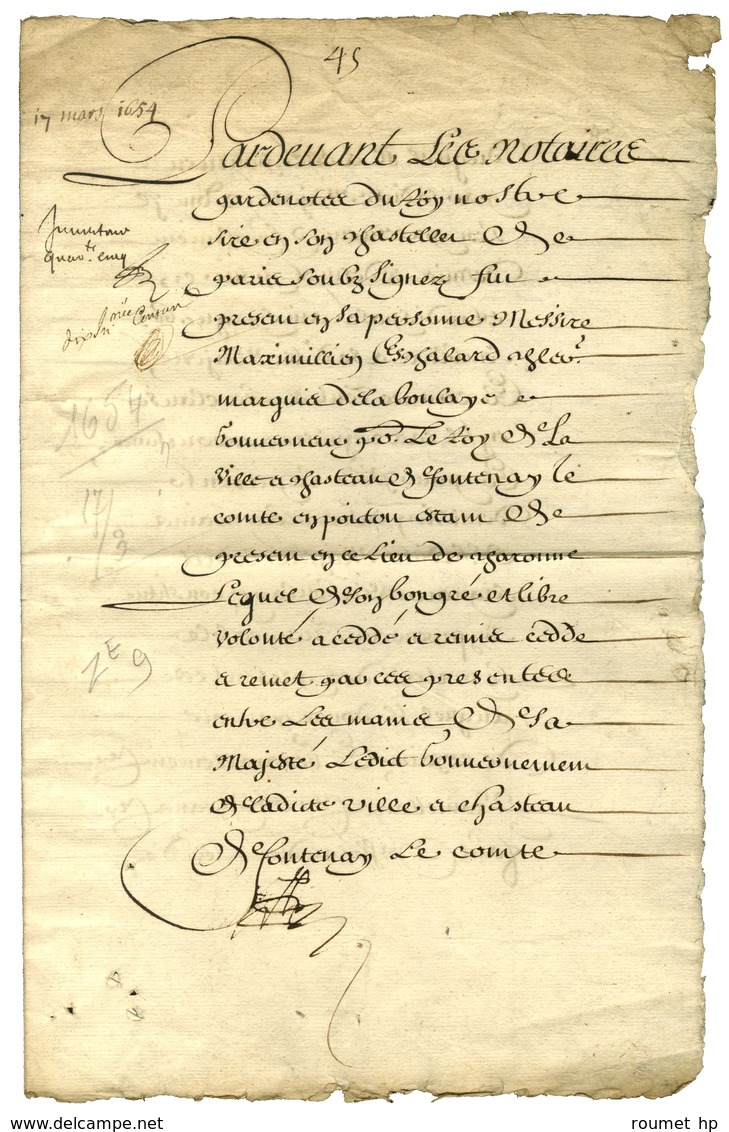 45
17 mars 1654
Pardevant Les notaires
gardenottes du Roy nostre
sire en son chastellet de
paris soubz signez fut
present en sa personne Messire
Maximillien Eschalard chler
marquis de la boulaye
Gouverneur po. Le Roy de La
ville et chasteau de fontenay le
comte en poictou estant de
present en ce Lieu de charonne
Lequel de son bon gré et libre
volonté a ceddé et remis cedde
et remet par ces presentes
entre Les mains de sa
Majesté Ledict Gouvernement
de ladicte ville et chasteau
de fontenay Le comte
Inventorié
quar.te cinq
1654
17/3
roumet hp